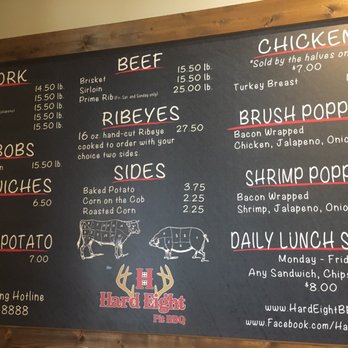 ORK
14.50 lb.
15.50 lb.
15.50 lb.
15.50 lb.
OBS
on 15.50 lb.
WICHES
6.50
POTATO
7.00
ng Hotline
8888
BEEF
Brisket 15.50 lb.
Sirloin 15.50 lb.
Prime Rib (Fri, Sat. and Sunday only) 25.00 lb.
RIBEYES
16 oz. hand-cut Ribeye 27.50
cooked to order with your
choice two sides
SIDES
Baked Potato 3.75
Corn on the Cob 2.25
Roasted Corn 2.25
H
Hard Eight
Pit BBQ
CHICKEN
*Sold by the halves on
$7.00
Turkey Breast
BRUSH POPP
Bacon Wrapped
Chicken, Jalapeno, Onio
SHRIMP POPP
Bacon Wrapped
Shrimp, Jalapeno, Onio
DAILY LUNCH S
Monday - Frid
Any Sandwich, Chips
$8.00
www.HardEightB
www.Facebook.com/Ha